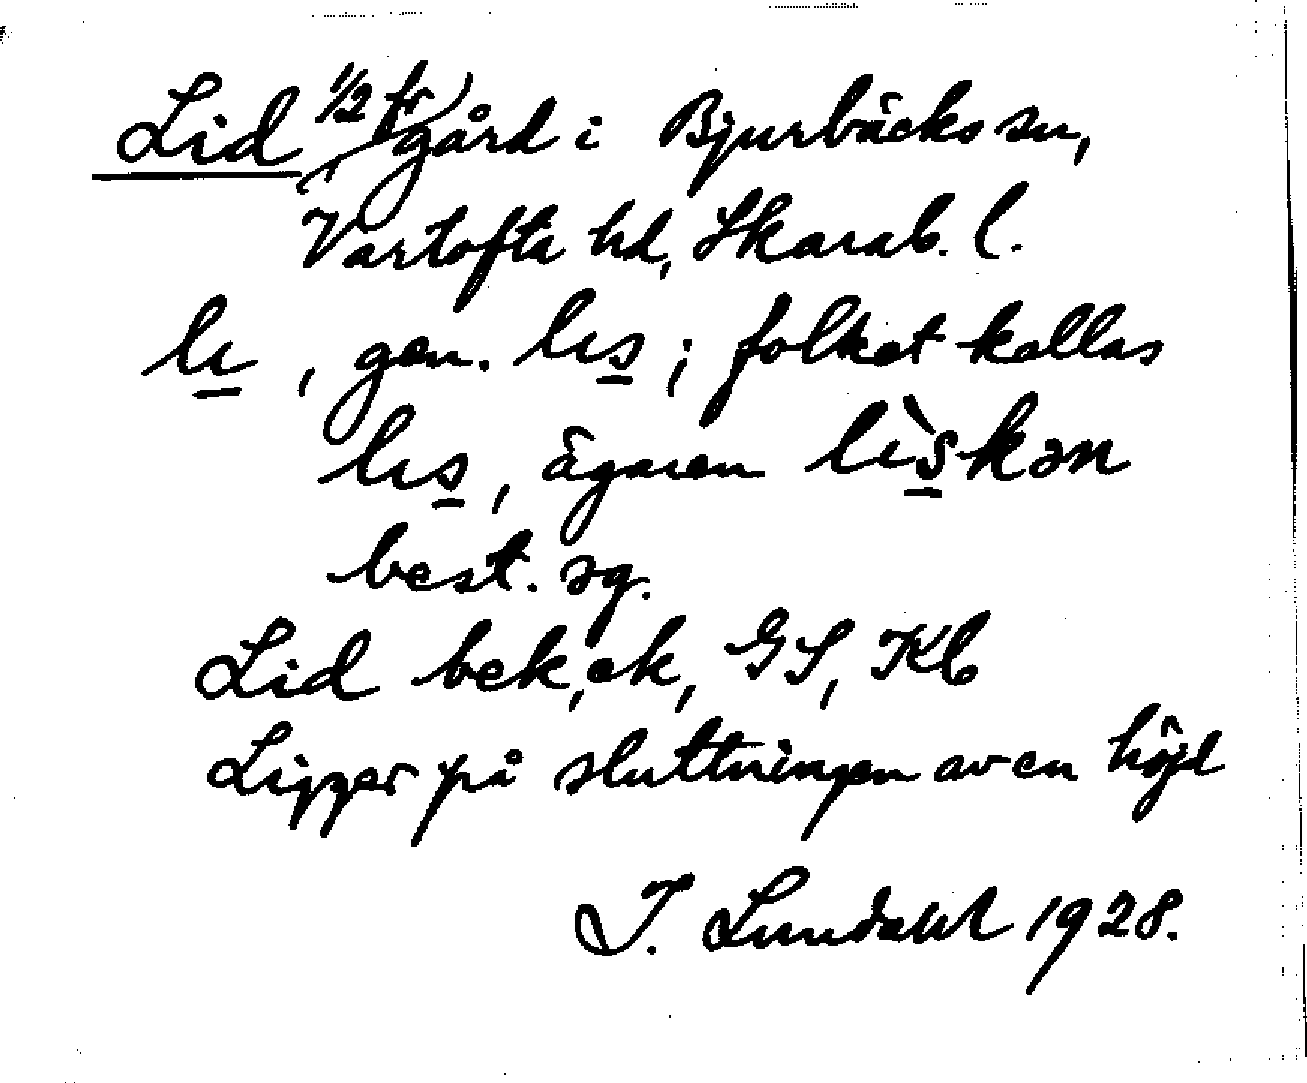 Lid (1/2 fr) gård i Bjurbäcks sn,
Vartofta hd, Skarab. l.
lı, gen. lıs; folket kallas
lıs, ägaren lı̀skən
best. sg.
Lid bek, ek, GS, Kb
Ligger på sluttningen av en höjd
I. Lundahl 1928.